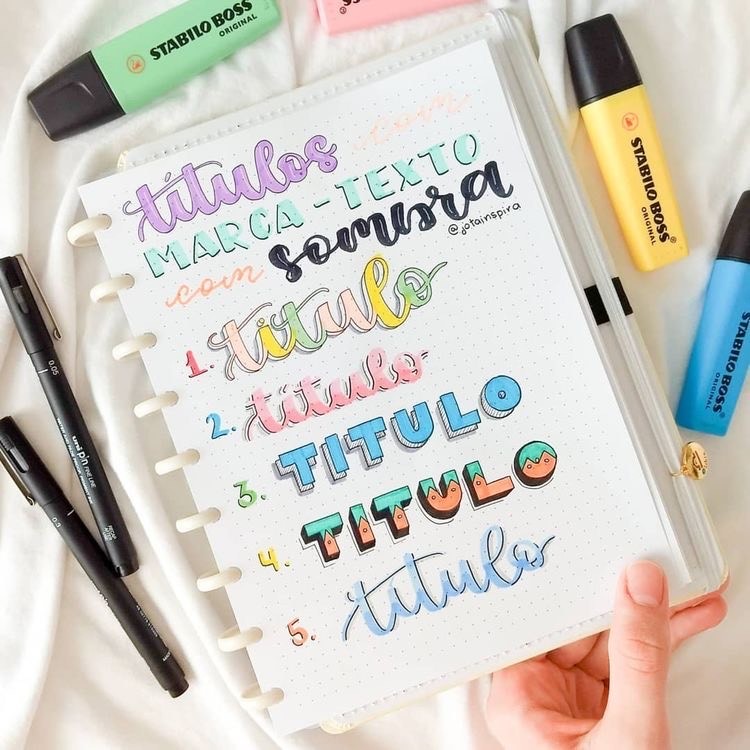 STABILO BOSS
ORIGINAL
títulos com
MARCA-TEXTO
com sombra
@jotainspira
1. título
2. título
3. TITULO
4. TITULO
5. titulo
STABILO BOSS
ORIGINAL
STABILO BOSS
ORIGINAL
0.05
uni pin
FINE LINE
0.3